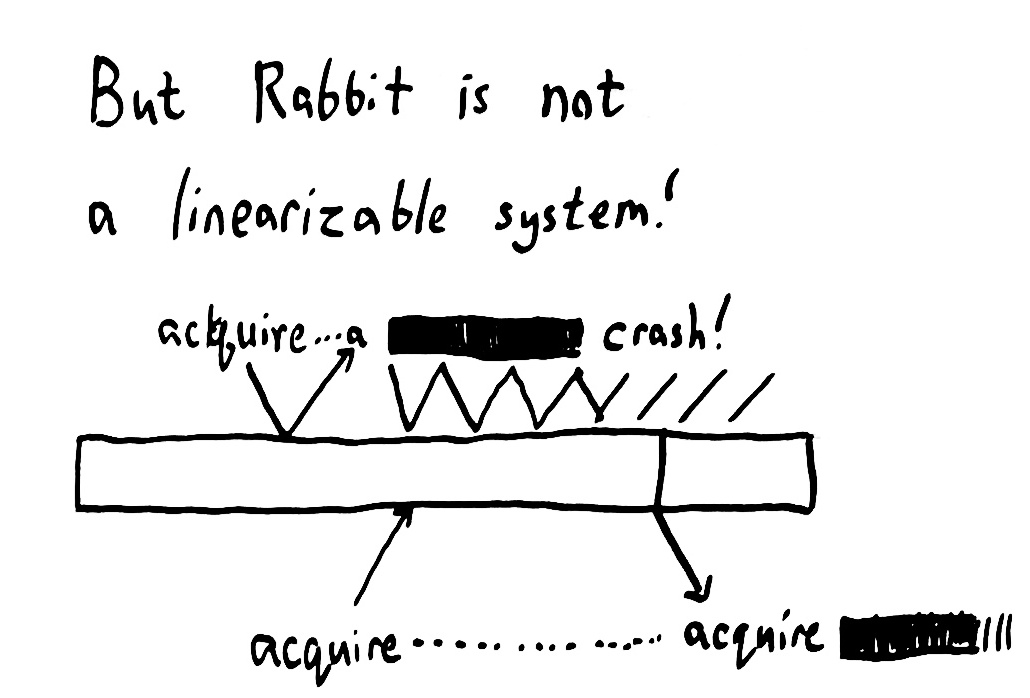 But Rabbit is not
a linearizable system!
acquire...a crash!
acquire.............. acquire